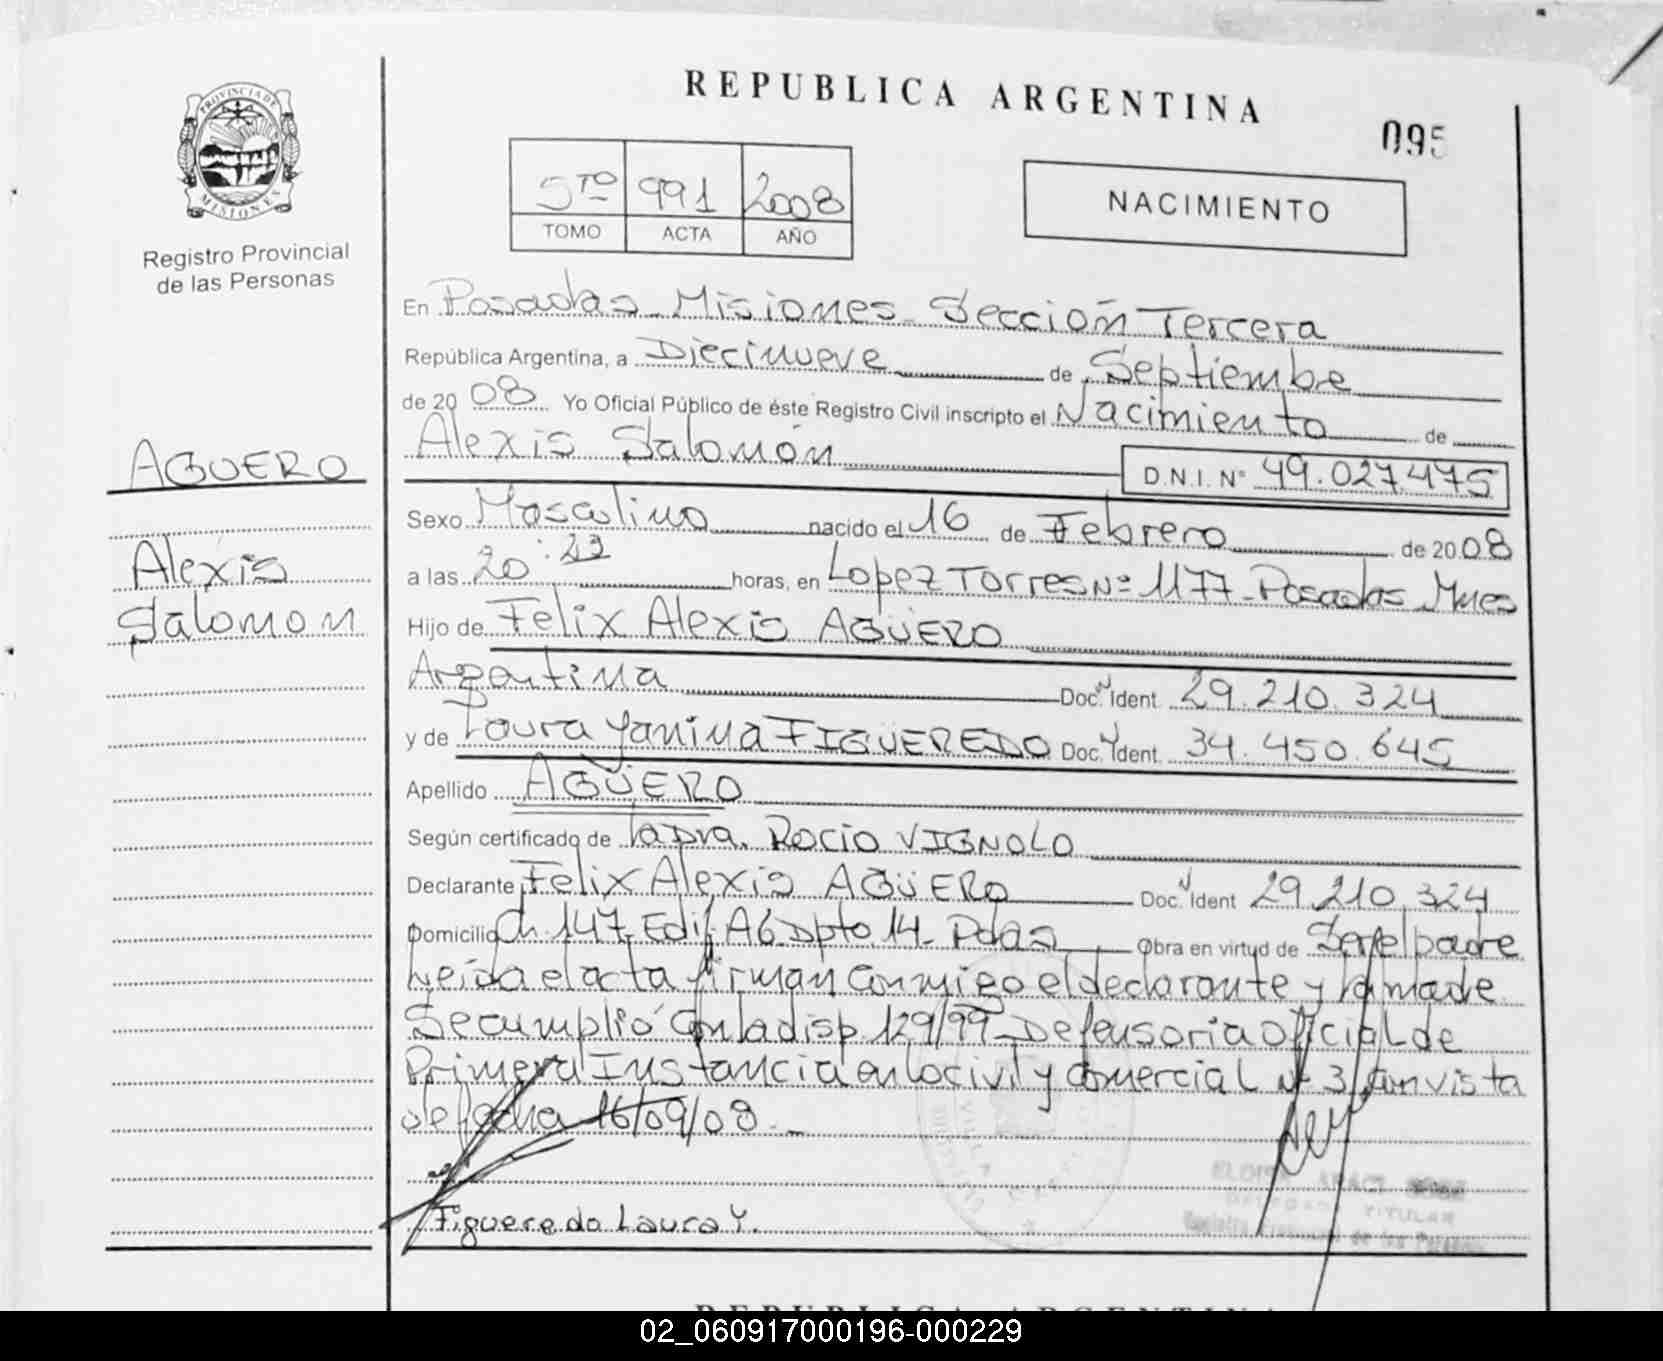 REPUBLICA ARGENTINA
095
PROVINCIA DE
MISIONES
Registro Provincial
de las Personas
5TO 991 2008
TOMO ACTA AÑO
NACIMIENTO
En Posadas - Misiones - Sección Tercera
República Argentina, a Diecinueve de Septiembre
de 20 08 Yo Oficial Público de éste Registro Civil inscripto el Nacimiento de
Alexis Salomón D.N.I. Nº 49.027.475
AGUERO
Alexis
Salomon
Sexo Masculino nacido el 16 de Febrero de 20 08
a las 20:23 horas, en Lopez Torres Nº 1177 - Posadas Mnes
Hijo de Felix Alexis AGÜERO
Argentina Doc. Ident. 29.210.324
y de Laura Yanina FIGUEREDO Doc. Ident. 34.450.645
Apellido AGÜERO
Según certificado de la Dra. Rocio VIGNOLO
Declarante Felix Alexis AGÜERO Doc. Ident 29.210.324
Domicilio Ch 147 Edif. A6 Dpto 14 - Pdas Obra en virtud de Ser el padre
Leída el acta firman conmigo el declarante y la madre
Se cumplió con la disp. 129/99 Defensoria Oficial de
Primera Instancia en lo civil y comercial Nº 3 con vista
de fecha 16/09/08.-
Figueredo Laura Y.
TITULAR
REPUBLICA ARGENTINA
02_060917000196-000229